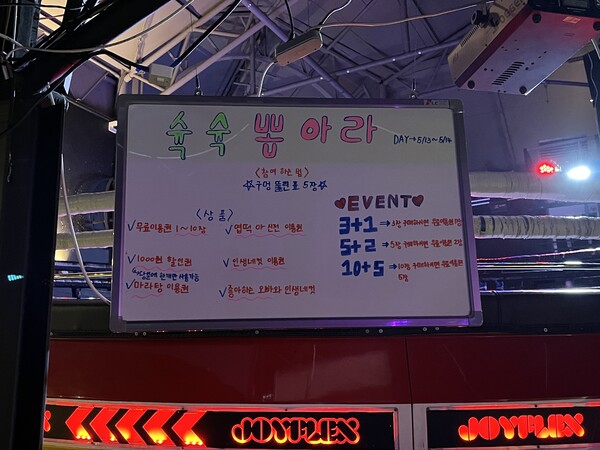 슉 슉 뽑 아 라
DAY→5/13~5/14
<참여 하는 법>
☆구멍 뚫린 표 5장☆
<상품>
✓무료이용권 1~10장
✓엽떡 아 신전 이용권
✓1000원 할인권
✓인생네컷 이용권
✓마라탕 이용권
✓좋아하는 오빠와 인생네컷
♥EVENT♥
3+1 → 3장 구매하시면 무료이용권 1장
5+2 → 5장 구매하시면 무료이용권 2장
10+5 → 10장 구매하시면 무료이용권
5장
JOYFLEX
JOYFLEX